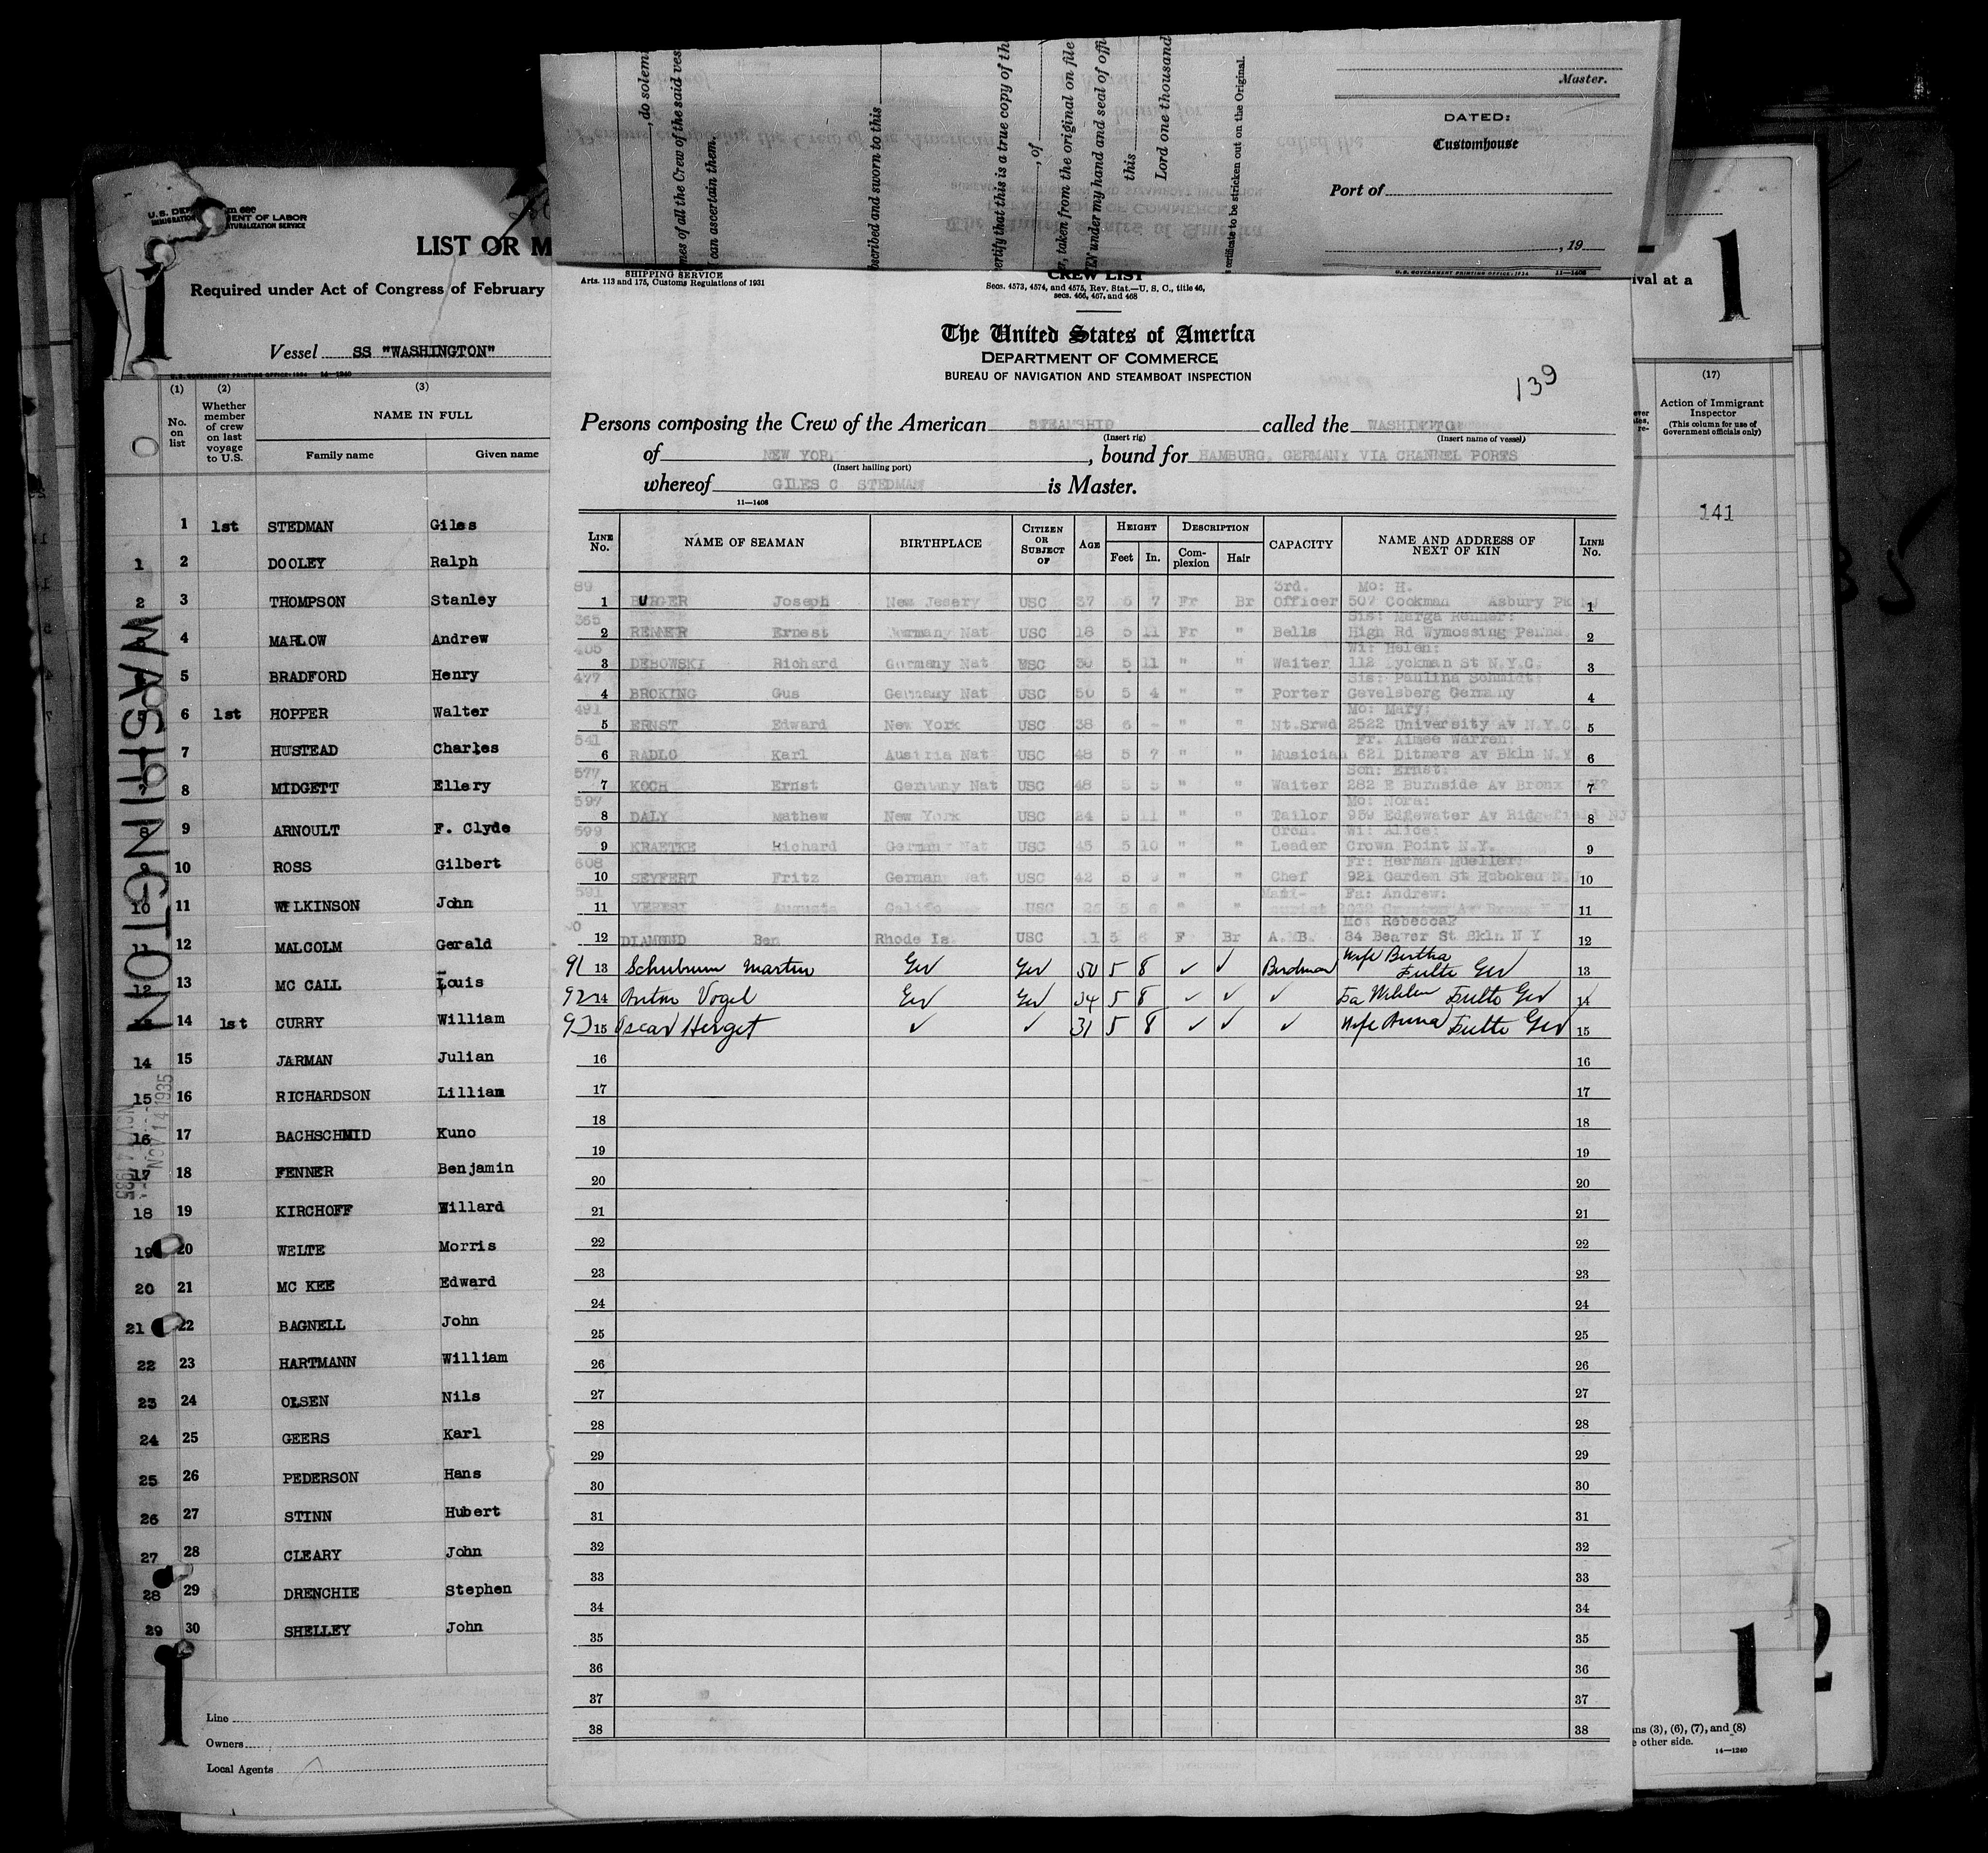 LIST OR M
Required under Act of Congress of February
Vessel SS "WASHINGTON"
(1) (2) (3)
No. on list
Whether member of crew on last voyage to U.S.
NAME IN FULL
Family name Given name
1 1st STEDMAN Giles
1 2 DOOLEY Ralph
2 3 THOMPSON Stanley
4 MARLOW Andrew
5 BRADFORD Henry
6 1st HOPPER Walter
7 HUSTEAD Charles
8 MIDGETT Ellery
8 9 ARNOULT F. Clyde
9 10 ROSS Gilbert
10 11 WILKINSON John
11 12 MALCOLM Gerald
12 13 MC CALL Louis
13 14 1st CURRY William
14 15 JARMAN Julian
15 16 RICHARDSON Lilliam
16 17 BACHSCHMID Kuno
17 18 FENNER Benjamin
18 19 KIRCHOFF Willard
19 20 WELTE Morris
20 21 MC KEE Edward
21 22 BAGNELL John
22 23 HARTMANN William
23 24 OLSEN Nils
24 25 GEERS Karl
25 26 PEDERSON Hans
26 27 STINN Hubert
27 28 CLEARY John
28 29 DRENCHIE Stephen
29 30 SHELLEY John
Line
Owners
Local Agents
WASHINGTON
NOV 14 1935
1
1
, do solem
mes of all the Crew of the said ves
I can ascertain them.
bscribed and sworn to this
ertify that this is a true copy of th
, of
, taken from the original on file
under my hand and seal of offi
this
Lord one thousand
certificate to be stricken out on the Original.
Master.
DATED:
Customhouse
Port of
, 19
U. S. GOVERNMENT PRINTING OFFICE: 1934 11—1408
SHIPPING SERVICE
Arts. 113 and 175, Customs Regulations of 1931
CREW LIST
Secs. 4573, 4574, and 4575, Rev. Stat.—U. S. C., title 46,
secs. 466, 467, and 468
The United States of America
DEPARTMENT OF COMMERCE
BUREAU OF NAVIGATION AND STEAMBOAT INSPECTION
139
Persons composing the Crew of the American STEAMSHIP called the WASHINGTON
(Insert rig) (Insert name of vessel)
of NEW YORK, bound for HAMBURG, GERMANY VIA CHANNEL PORTS
(Insert hailing port)
whereof GILES C STEDMAN is Master.
11—1408
LINE No. NAME OF SEAMAN BIRTHPLACE CITIZEN OR SUBJECT OF AGE HEIGHT DESCRIPTION CAPACITY NAME AND ADDRESS OF NEXT OF KIN LINE No.
Feet In. Complexion Hair
89 3rd. Mo: H.
1 BURGER Joseph New Jesery USC 37 5 7 Fr Br Officer 507 Cookman Asbury Pk NJ 1
365 Sis: Marga Renner:
2 RENNER Ernest Germany Nat USC 18 5 11 Fr " Bells High Rd Wymossing Penna 2
405 Wi: Helen:
3 DEBOWSKI Richard Germany Nat USC 30 5 11 " " Waiter 112 Dyckman St N.Y.C. 3
477 Sis: Paulina Schmidt:
4 BROKING Gus Germany Nat USC 50 5 4 " " Porter Gevelsberg Germany 4
491 Mo: Mary:
5 ERNST Edward New York USC 38 6 - " " Nt.Srwd 2522 University Av N.Y.C. 5
541 Fr. Aimee Warren:
6 RADLO Karl Austria Nat USC 48 5 7 " " Musician 621 Ditmars Av Bkln N.Y. 6
577 Son: Ernst:
7 KOCH Ernst Germany Nat USC 48 5 5 " " Waiter 282 E Burnside Av Bronx 7
597 Mo: Nora:
8 DALY Mathew New York USC 24 5 11 " " Tailor 959 Edgewater Av Ridgefield NJ 8
599 Orch. Wi: Alice:
9 KRAETKE Richard Germany Nat USC 45 5 10 " " Leader Crown Point N.Y. 9
608 Fr: Herman Mueller:
10 SEYFERT Fritz German Nat USC 42 5 " " Chef 921 Garden St Hoboken N.J. 10
591 Mani- Fa: Andrew:
11 Augusta Califo USC 26 5 6 " " Av Bronx N Y 11
Mo: Rebecca?
12 DIAMOND Ben Rhode Is. USC 5 6 F Br A.B. 84 Beaver St Bkln N Y 12
91 13 Schubrum Martin Ger Ger 50 5 8 ✓ ✓ Birdman Wife Bertha Fulte Ger 13
92 14 Anton Vogel Ger Ger 34 5 8 ✓ ✓ ✓ Fa Fulte Ger 14
93 15 Oscar Herget ✓ ✓ 31 5 8 ✓ ✓ ✓ Wife Anna Fulte Ger 15
16 16
17 17
18 18
19 19
20 20
21 21
22 22
23 23
24 24
25 25
26 26
27 27
28 28
29 29
30 30
31 31
32 32
33 33
34 34
35 35
36 36
37 37
38 38
ival at a
1
(17)
Action of Immigrant Inspector
(This column for use of Government officials only)
141
1
2
ns (3), (6), (7), and (8)
e other side.
14—1240